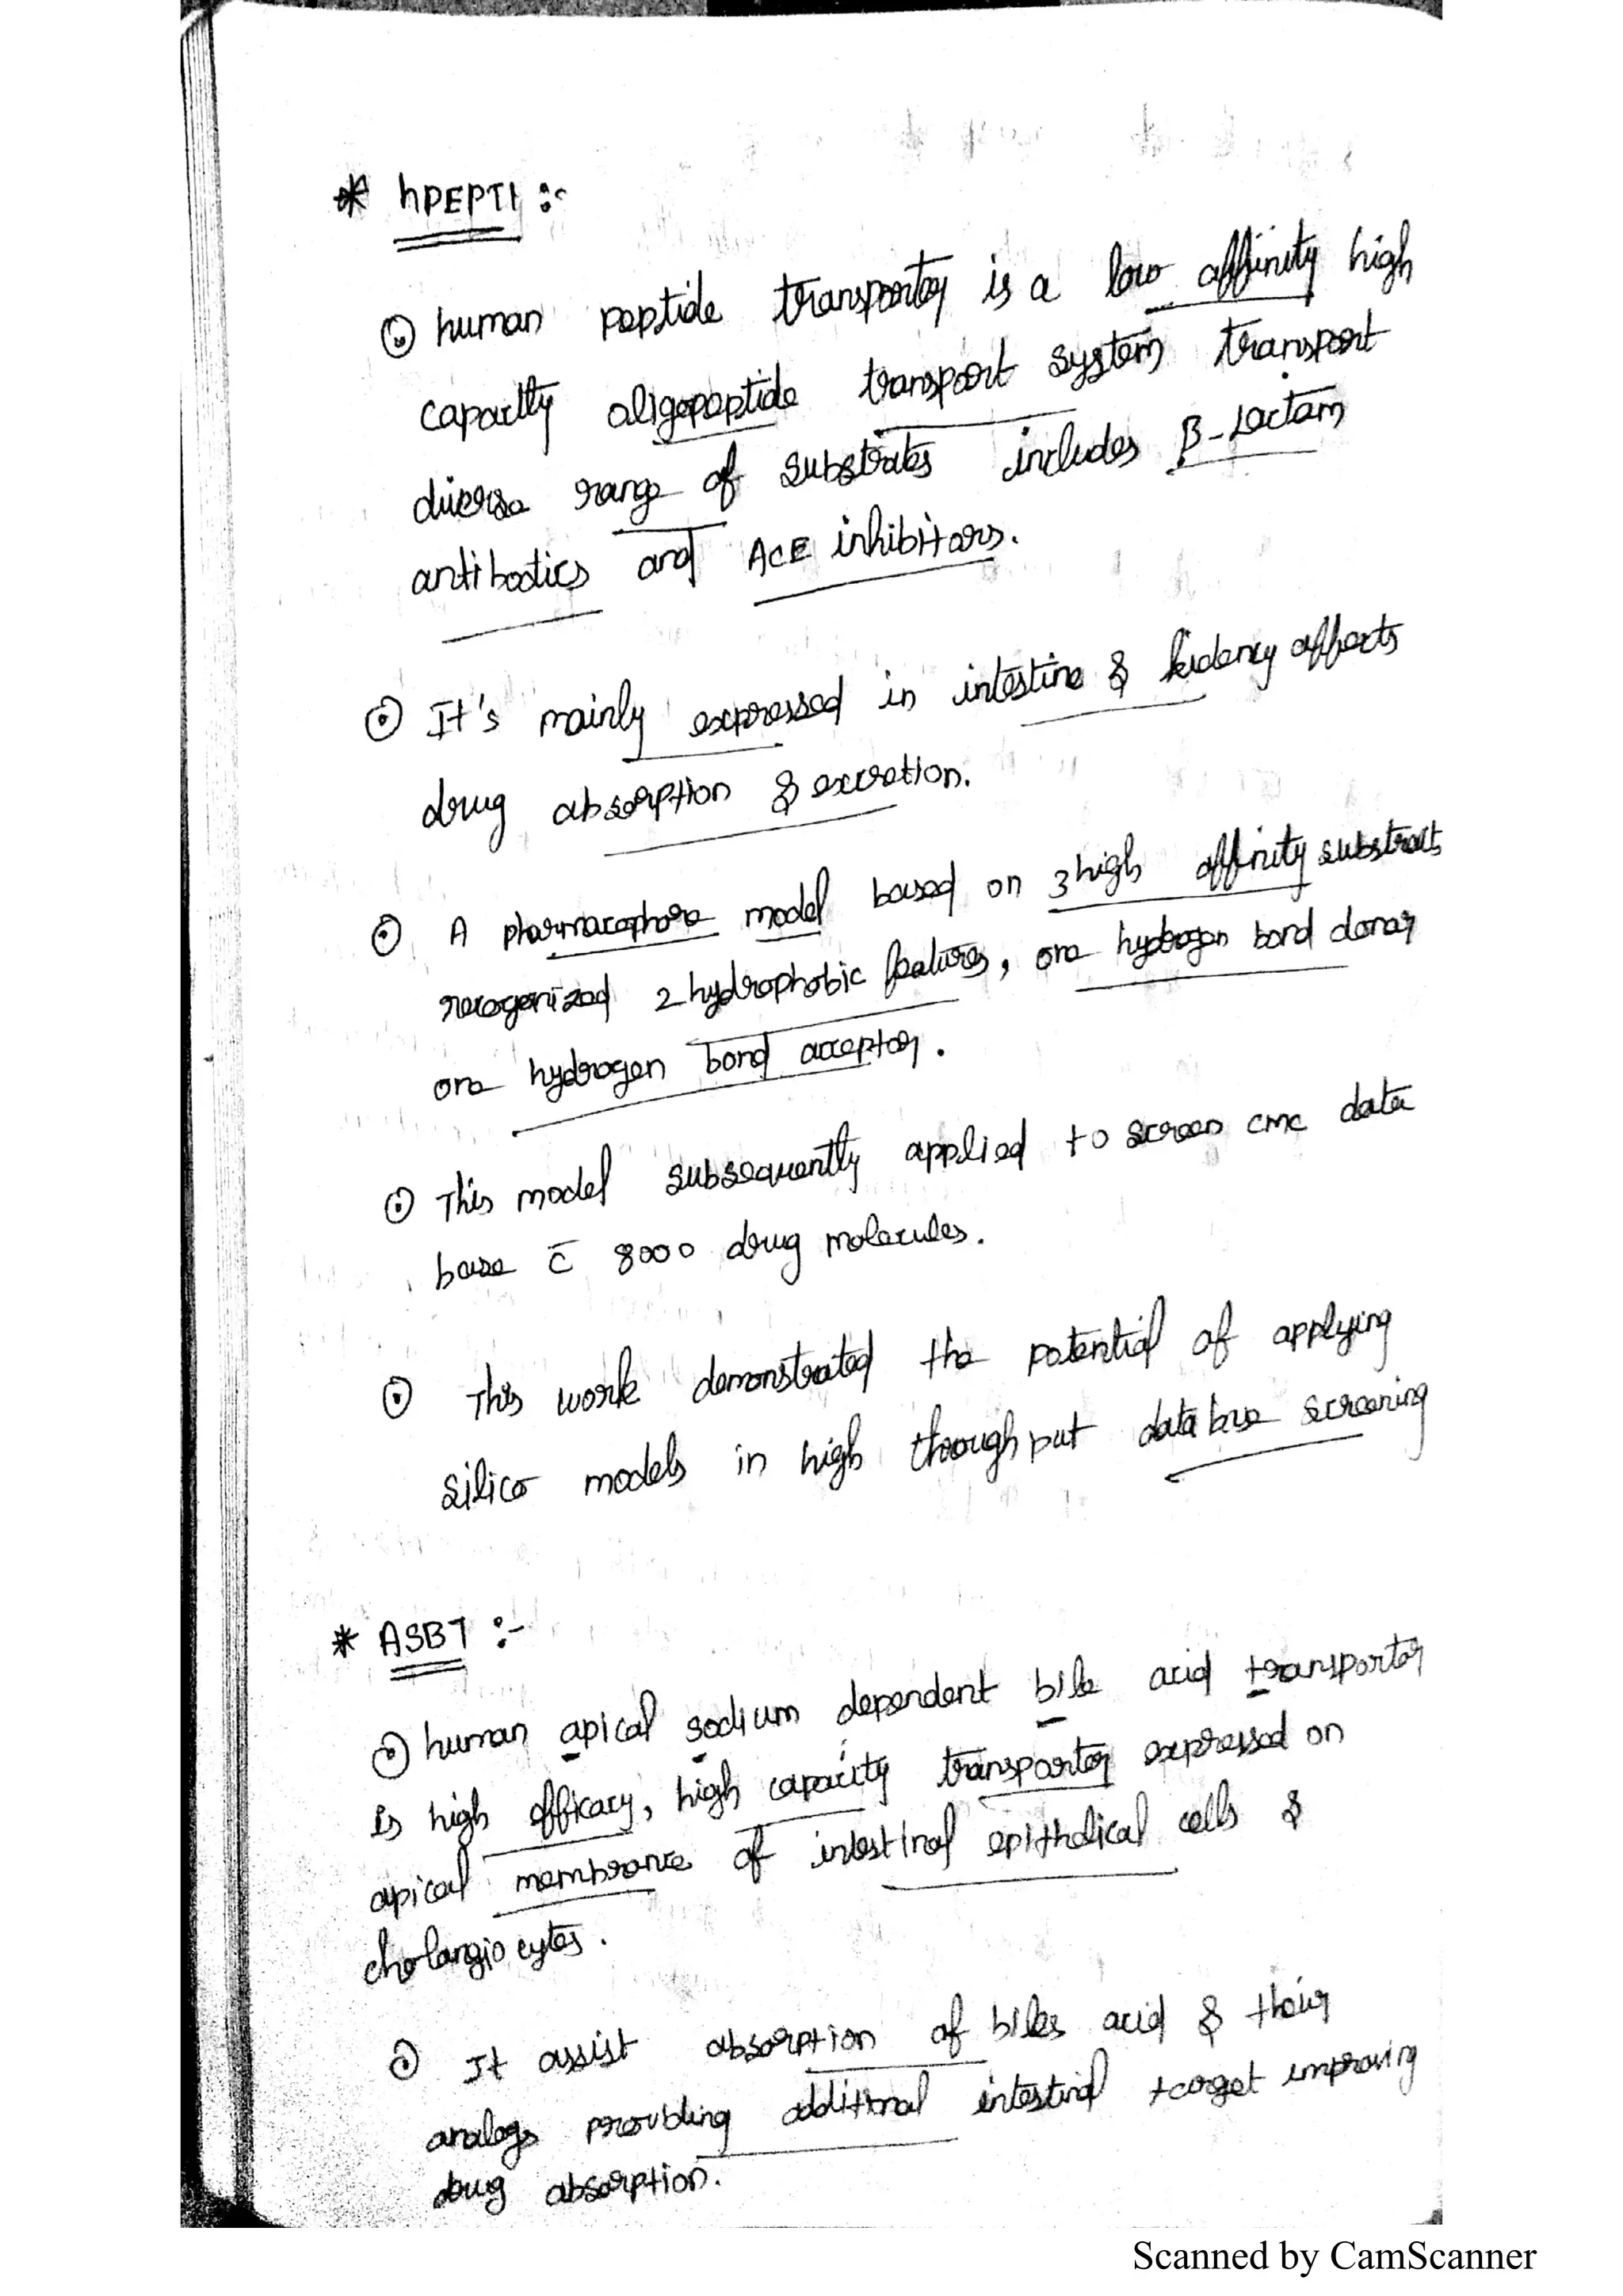 * hPEPT1 :-
human peptide transporter is a low affinity high
capacity oligopeptide transport system transport
diverse range of substrates includes β-Lactam
antibodics and ACE inhibitors.
It's mainly expressed in intestine & kidency affects
drug absorption & excretion.
A pharmacophore model based on 3 high affinity substrats
recogenized 2 hydrophobic features, one hydrogen bond donar
one hydrogen bond acceptor.
This model subsequently applied to screen cmc data
base c̄ 8000 drug molecules.
This work demonstrated the potential of applying
silico models in high throughput data base screening
* ASBT :-
human apical sodium dependent bile acid transporter
is high efficacy, high capacity transporter expressed on
apical membrane of intestinal epithelical cells &
cholangiocytes.
It assist absorption of biles acid & their
analogs providing additional intestinal target improving
drug absorption.
Scanned by CamScanner